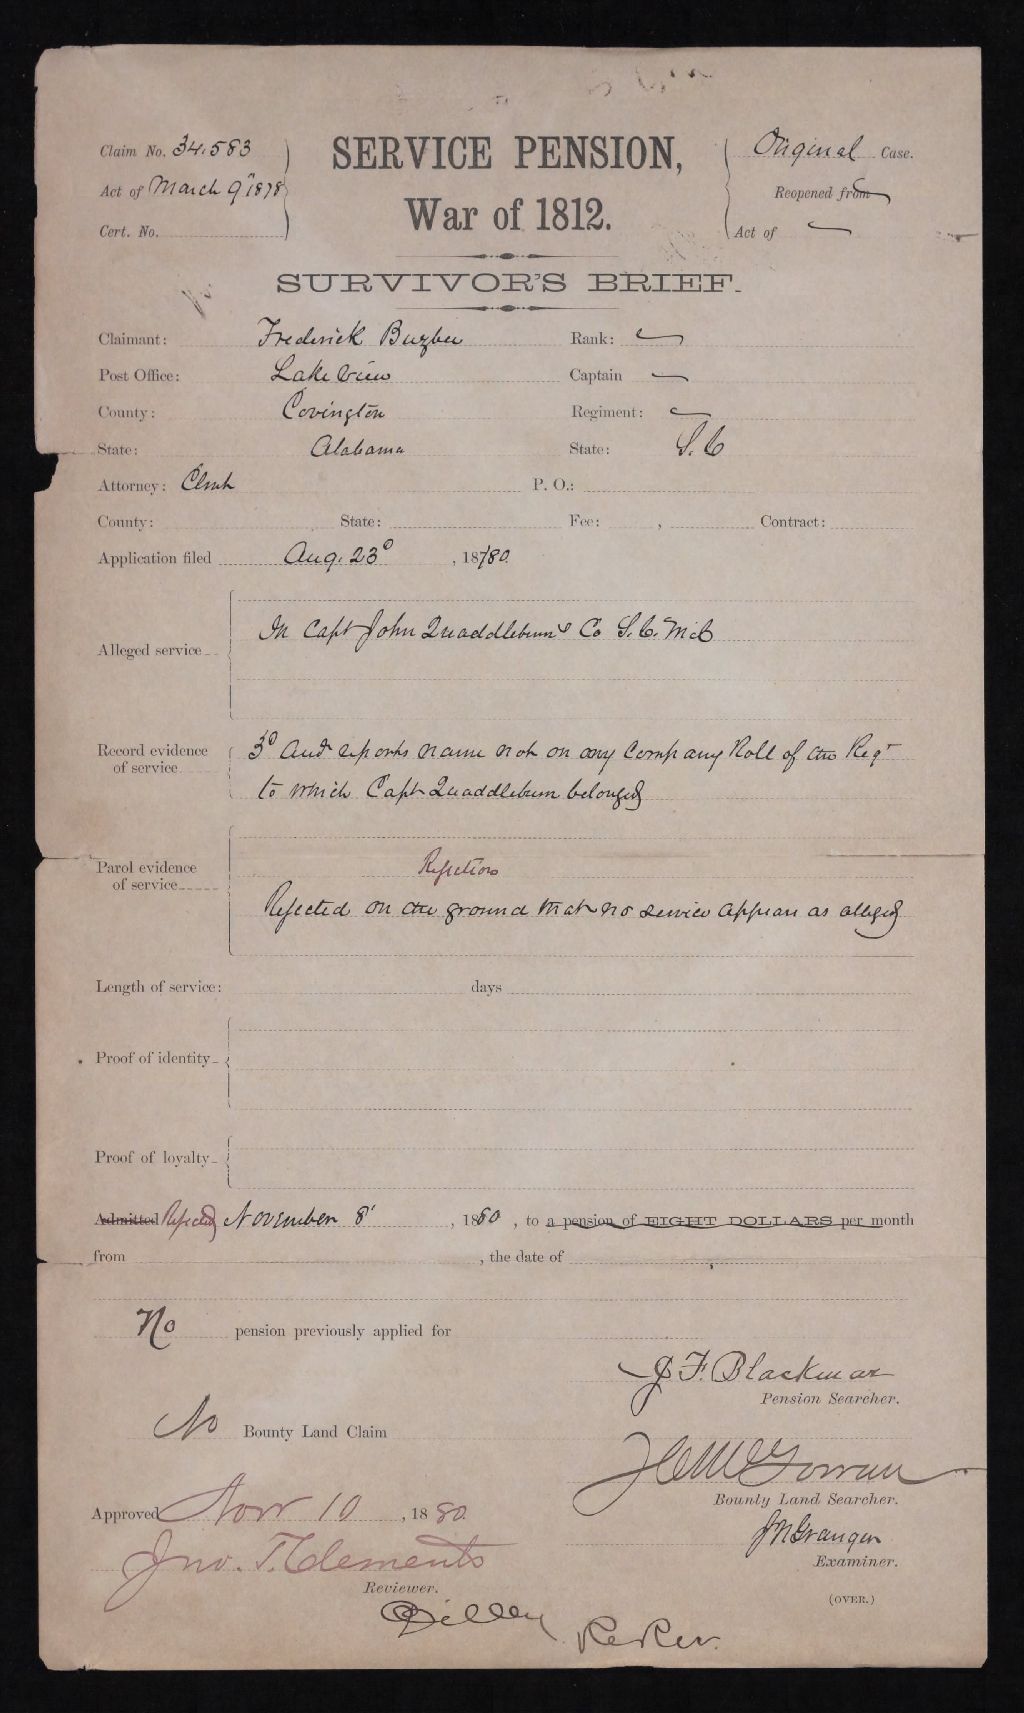 Claim No. 34.583
SERVICE PENSION,
Original Case.
Act of March 9" 1878
War of 1812.
Reopened from
Cert. No.
Act of
SURVIVOR'S BRIEF.
Claimant: Frederick Buzbee Rank:
Post Office: Lake View Captain
County: Covington Regiment:
State: Alabama State: S. C
Attorney: Clmt P. O.:
County: State: Fee: , Contract:
Application filed Aug. 23d , 1880.
Alleged service In Capt John Quaddlebum's Co S. C. Mil
Record evidence of service 3d Aud reports name not on any Company Roll of the Regt
to which Capt Quaddlebum belonged
Parol evidence of service Rejection
Rejected on the ground that no service appears as alleged
Length of service: days
Proof of identity
Proof of loyalty
Admitted Rejected November 8" , 1880 , to a pension of EIGHT DOLLARS per month
from , the date of ,
No pension previously applied for
J F. Blackmar
Pension Searcher.
No Bounty Land Claim
McGowan
Bounty Land Searcher.
Approved Nov 10 , 1880
J N Granger
Examiner.
Jno. T. Clements
Reviewer.
(OVER.)
ReRev.